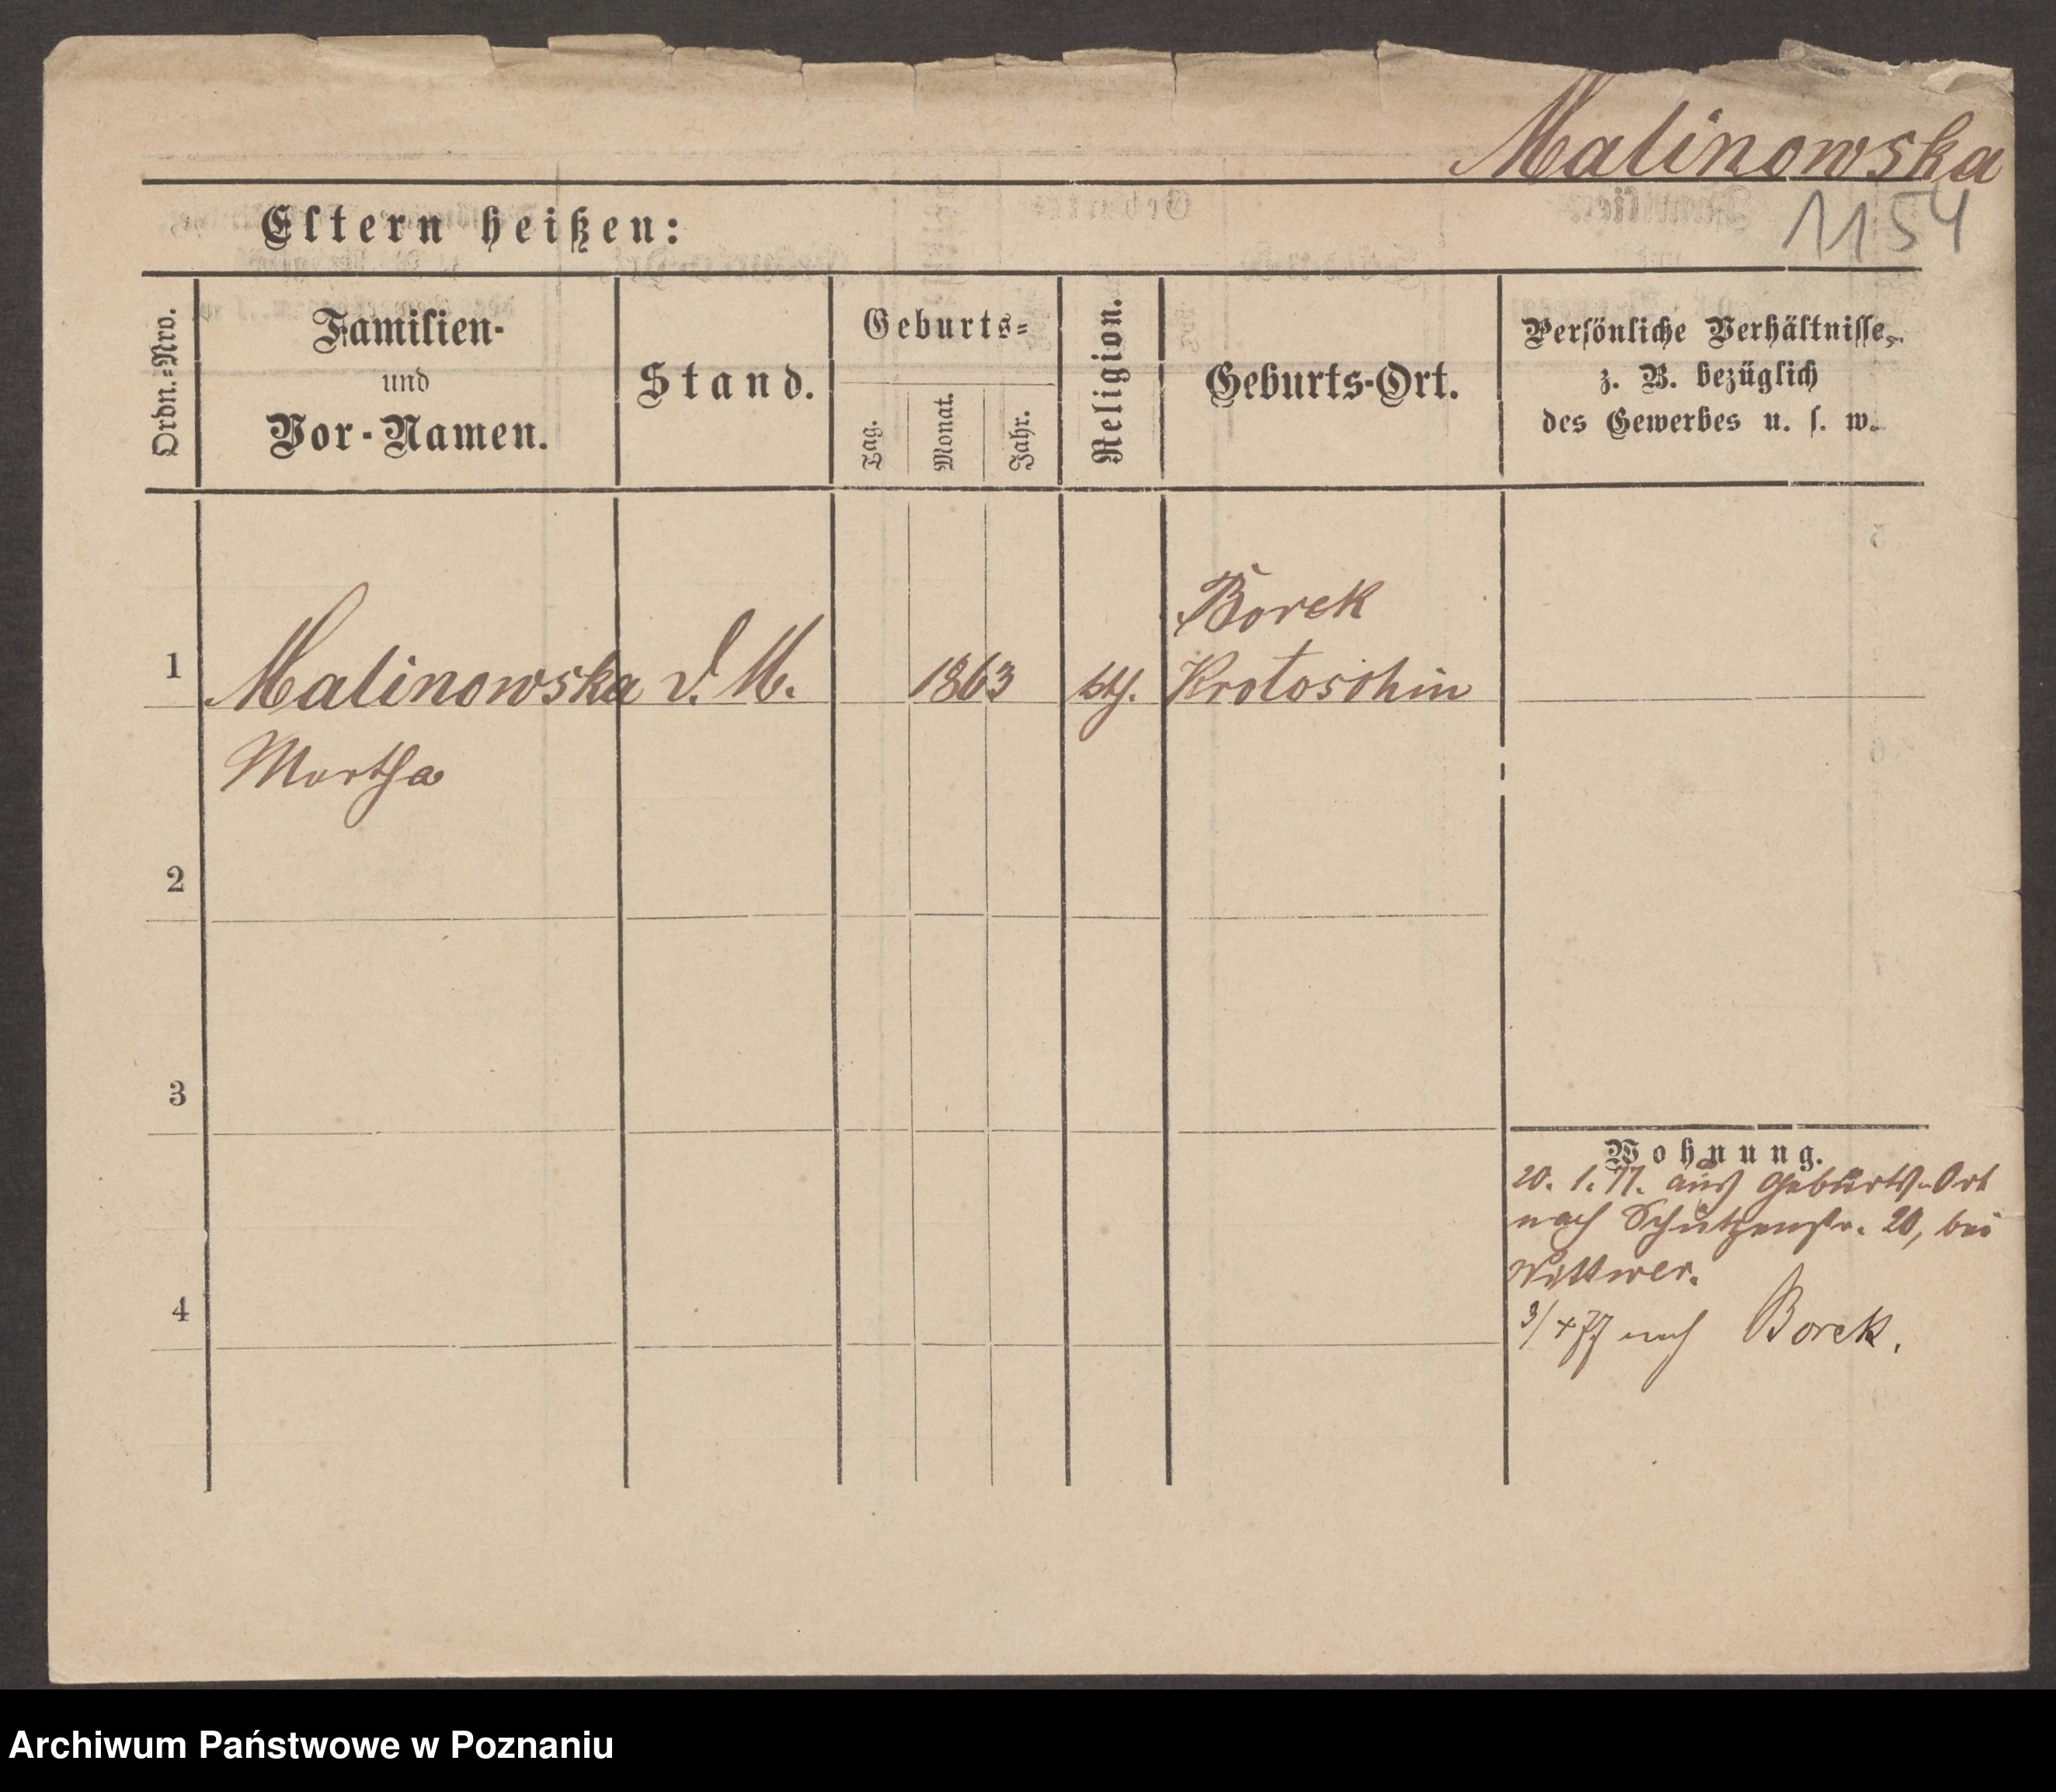 Malinowska
1154
Eltern heißen:
Ordn.=Nro.
Familien-
und
Vor-Namen.
Stand.
Geburts=
Tag.
Monat.
Jahr.
Religion.
Geburts-Ort.
Persönliche Verhältnisse,
z. B. bezüglich
des Gewerbes u. s. w.
Borek
1 Malinowska d. M. 1863 kth. Krotoschin
Martha
2
3
Wohnung.
20. 1. 77. aus Geburts-Ort
nach Schützenstr. 20, bei
Wittwer.
4
3/4 77 nach Borek.
Archiwum Państwowe w Poznaniu